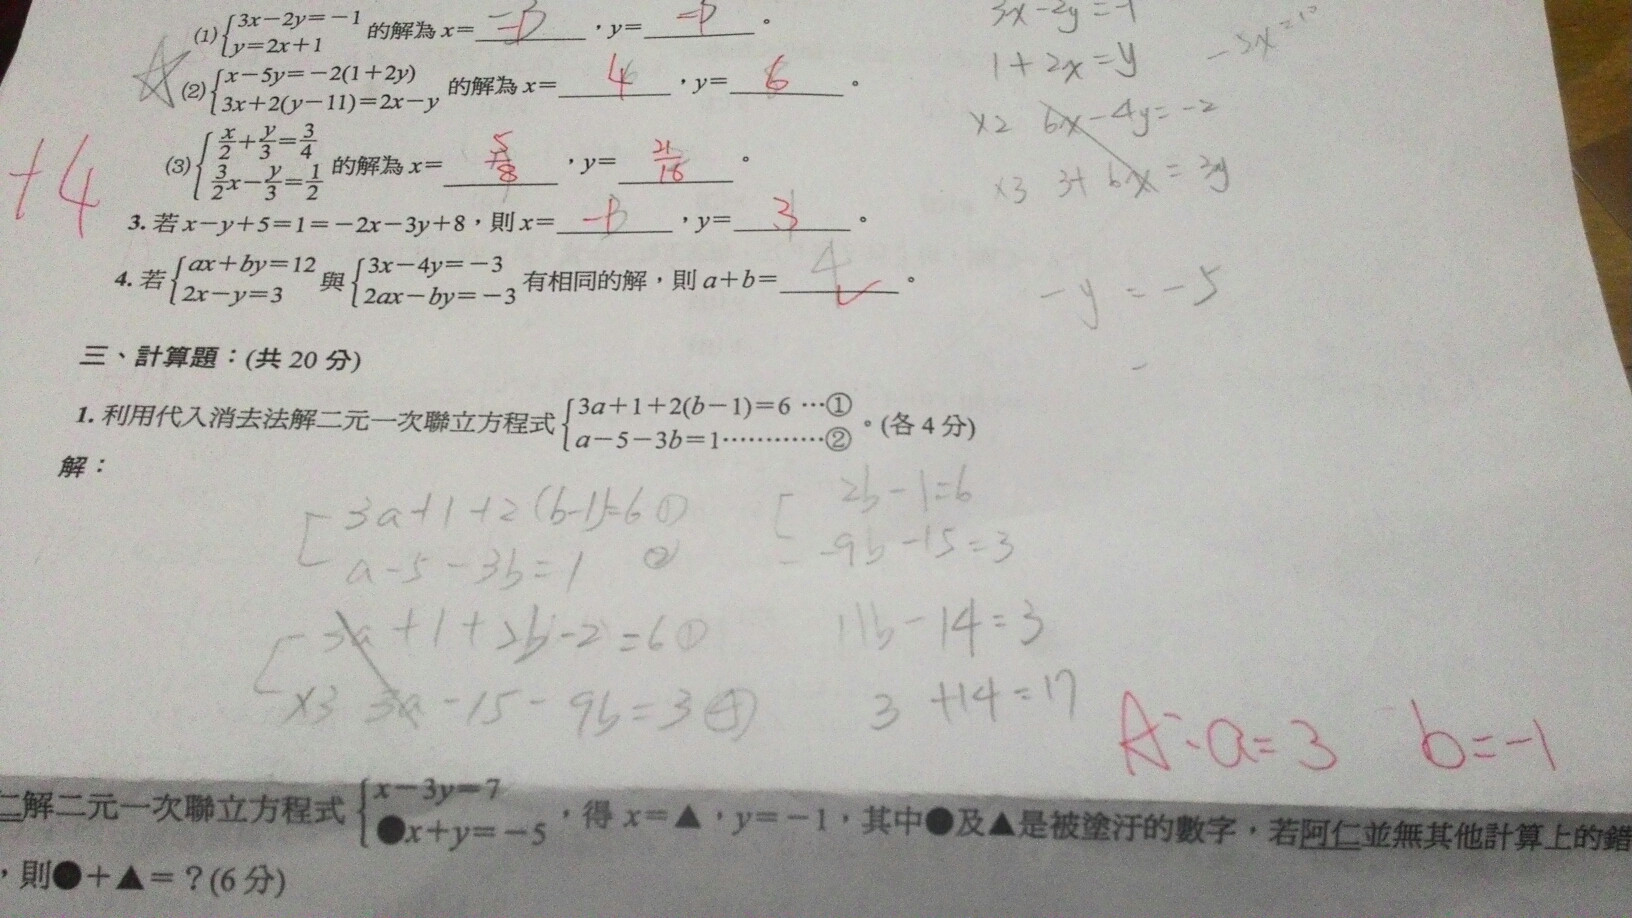 (1) { 3x－2y＝－1
y＝2x＋1 的解為 x＝ ，y＝ 。
(2) { x－5y＝－2(1＋2y)
3x＋2(y－11)＝2x－y 的解為 x＝ 4 ，y＝ 6 。
(3) { x/2＋y/3＝3/4
3/2x－y/3＝1/2 的解為 x＝ 5/8 ，y＝ 21/16 。
+4
3. 若 x－y＋5＝1＝－2x－3y＋8，則 x＝ -1 ，y＝ 3 。
4. 若 { ax＋by＝12
2x－y＝3 與 { 3x－4y＝－3
2ax－by＝－3 有相同的解，則 a＋b＝ 4 。
3x-2y=-1
1+2x=y
x2 6x-4y=-2
x3 3+6x=3y
-y=-5
三、計算題：(共 20 分)
1. 利用代入消去法解二元一次聯立方程式 { 3a＋1＋2(b－1)＝6 …①
a－5－3b＝1…………② 。(各 4 分)
解：
3a+1+2(b-1)=6 ①
a-5-3b=1 ②
3a+1+2b-2=6 ①
x3 3a-15-9b=3 ④
2b-1=6
-9b-15=3
11b-14=3
3+14=17
A:a=3 b=-1
仁解二元一次聯立方程式 { x－3y＝7
●x＋y＝－5 ，得 x＝▲，y＝－1，其中●及▲是被塗汙的數字，若阿仁並無其他計算上的錯
，則●＋▲＝？(6 分)